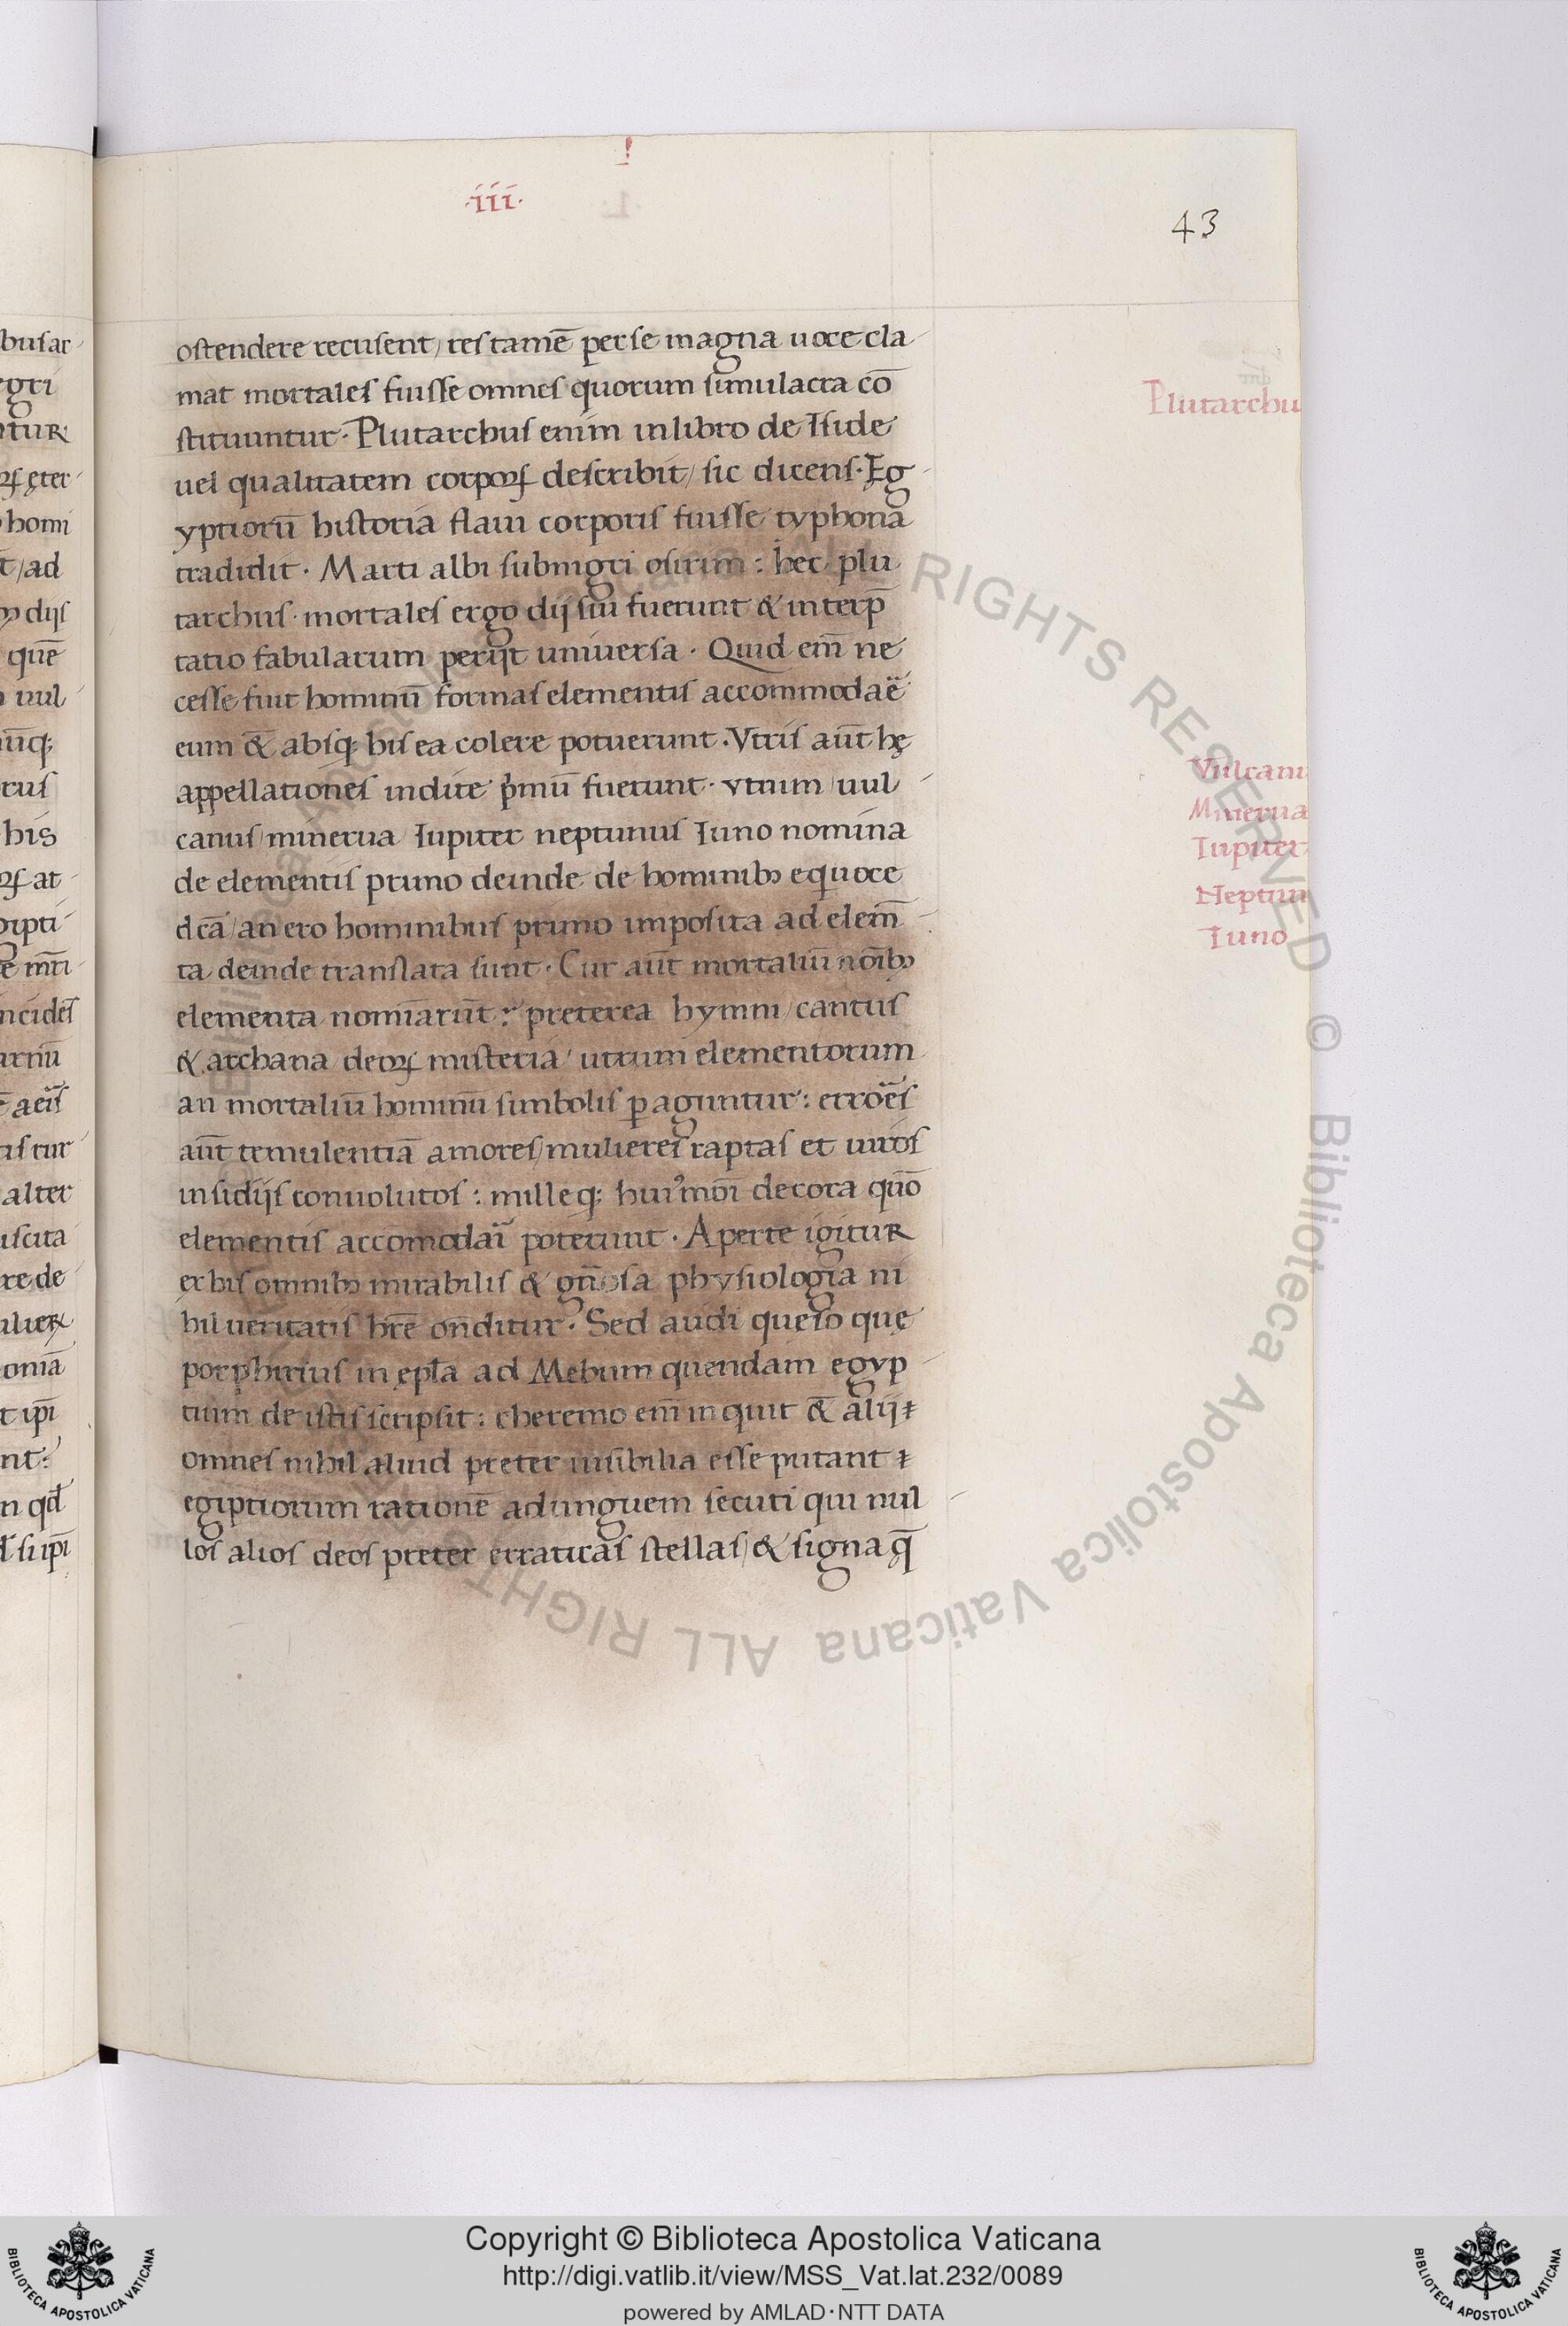 .iii.
43
ostendere recusent/ res tamē per se magna uoce cla
mat mortales fuisse omnes quorum simulacra cō
stituuntur. Plutarchus enim in libro de Iside
uel qualitatem corporꝝ describit/ sic dicens. Eg
yptiorū historia flaui corporis fuisse typhona
tradidit. Marti albi subnigri osirim: hec plu
tarchus. mortales ergo dij sui fuerunt & interp̄
tatio fabularum perijt uniuersa. Quid em̄ ne
cesse fuit hominū formas elementis accommodar̄e
cum & absq; his ea colere potuerunt. Vtris aūt hę
appellationes indite p̍mū fuerunt. vtrum/ uul
canus/ minerua Iupiter neptunus Iuno nomina
de elementis primo deinde de hominibꝫ equoce
dc̄a/ an ero hominibus primo imposita ad elem̄
ta deinde translata sunt. Cur aūt mortaliū noīb
elementa nomīarūt? preterea hymni/ cantus
& archana deoꝝ misteria/ utrum elementorum
an mortaliū hominū simbolis ꝑaguntur: erroēs
aūt temulentiā amores/ mulieres raptas et uiros
insidijs conuolutos: milleq; huiꝰmōi decora quō
elementis accomodari poterunt. Aperte igitur
ex his omnibꝫ mirabilis & gn̄osa physiologia ni
hil ueritatis hr̄e on̄ditur. Sed audi quero quę
porphirius in epl̄a ad Mebum quendam egyp
tium de istis scripsit: cheremo em̄ inquit & alij
omnes nihil aliud preter uisibilia esse putant
egiptiorum rationē ad unguem secuti qui nul
los alios deos preter erraticas stellas/ & signa q̄
Plutarchu
Vulcanu
Minerua
Iupiter
Neptun
Iuno
Biblioteca Apostolica Vaticana ALL RIGHTS RESERVED ©
Copyright © Biblioteca Apostolica Vaticana
http://digi.vatlib.it/view/MSS_Vat.lat.232/0089
powered by AMLAD·NTT DATA
BIBLIOTECA APOSTOLICA VATICANA
BIBLIOTECA APOSTOLICA VATICANA